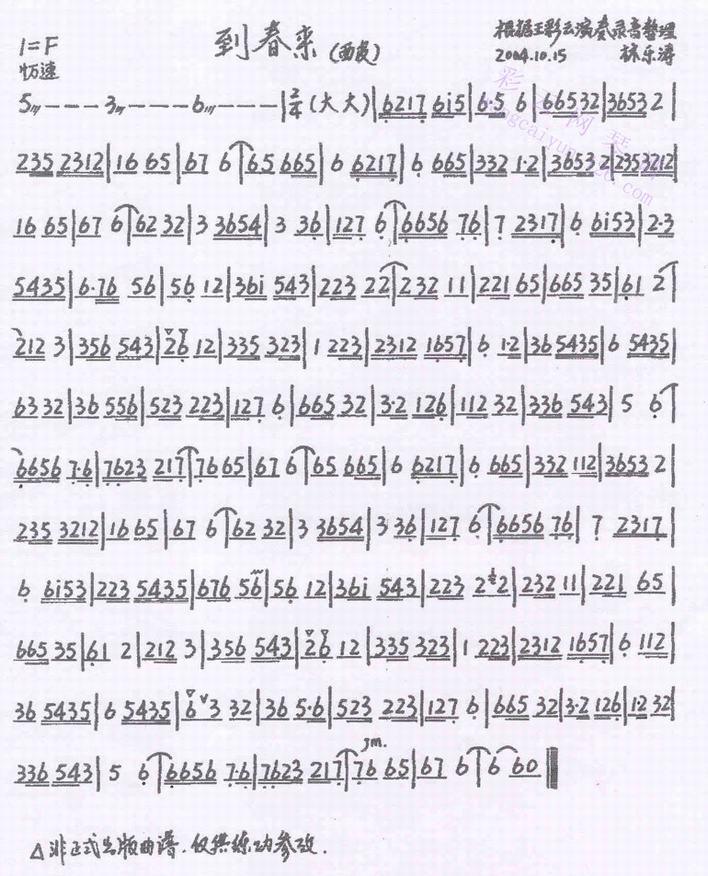 到春来 (西皮)
根据王彩云演奏录音整理
1=F
2004.10.15 林乐涛
忄万速
5 - - - 3 - - - 6 - - - | 2/4 (大大) | 6217 6i5 | 6·5 6 | 66532 | 3653 2 |
235 2312 | 16 65 | 67 6 | 65 665 | 6 6217 | 6 665 | 332 1·2 | 3653 2 | 2353212 |
16 65 | 67 6 | 62 32 | 3 3654 | 3 36 | 127 6 | 6656 76 | 7 2317 | 6 6i53 | 2·3
5435 | 6·76 56 | 56 12 | 36i 543 | 223 22 | 232 11 | 221 65 | 665 35 | 61 2
212 3 | 356 543 | 26 12 | 335 323 | 1 223 | 2312 1657 | 6 1·2 | 36 5435 | 6 5435 |
63 32 | 36 556 | 523 223 | 127 6 | 665 32 | 3·2 126 | 112 32 | 336 543 | 5 6
6656 7·6 | 7623 217 | 76 65 | 67 6 | 65 665 | 6 6217 | 6 665 | 332 112 | 3653 2 |
235 3212 | 16 65 | 67 6 | 62 32 | 3 3654 | 3 36 | 127 6 | 6656 76 | 7 2317 |
6 6i53 | 223 5435 | 676 56 | 56 12 | 36i 543 | 223 2 2 | 232 11 | 221 65
665 35 | 61 2 | 212 3 | 356 543 | 26 12 | 335 323 | 1 223 | 2312 1657 | 6 112 |
36 5435 | 6 5435 | 6 3 32 | 36 5·6 | 523 223 | 127 6 | 665 32 | 3·2 126 | 12 32 |
336 543 | 5 6 | 6656 7·6 | 7623 217 | 76 65 | 67 6 | 6 60
△非正式出版曲谱.仅供练功参考.